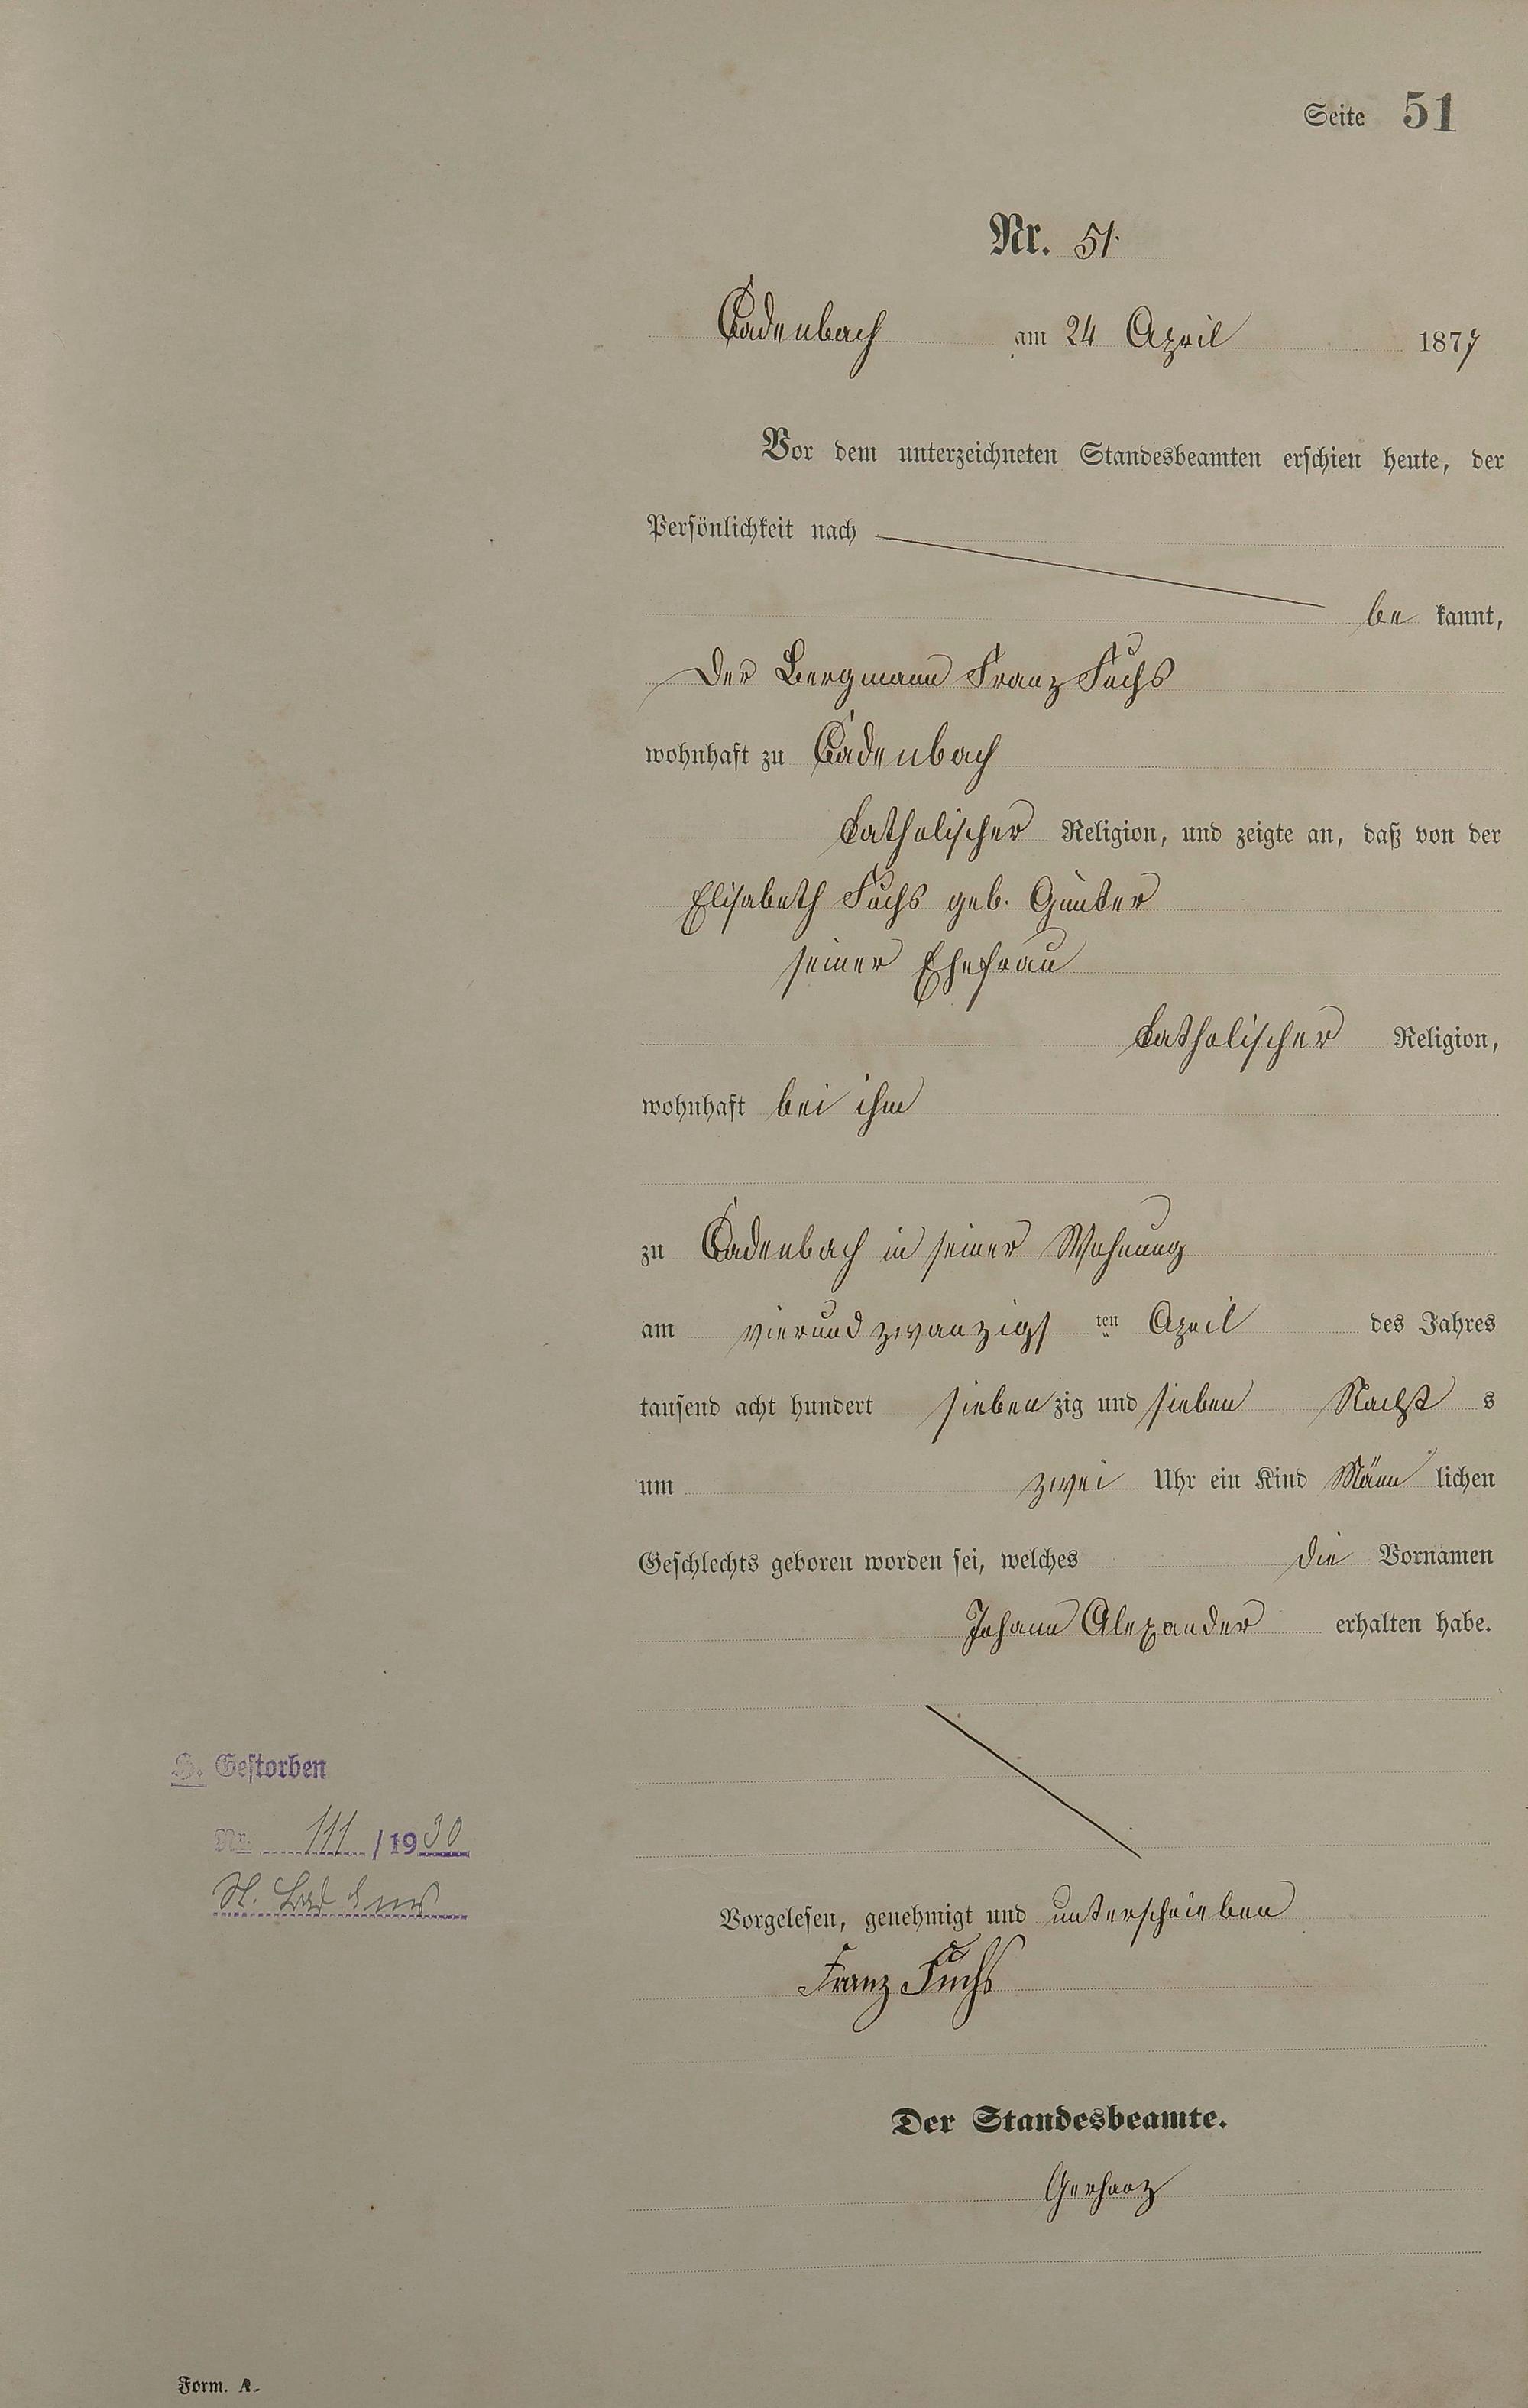 Seite 51
Nr. 51.
Cadenbach am 24 April 1877
Vor dem unterzeichneten Standesbeamten erschien heute, der
Persönlichkeit nach
be kannt,
Der Bergmann Franz Fuchs
wohnhaft zu Cadenbach
Catholischer Religion, und zeigte an, daß von der
Elisabeth Fuchs geb. Günter
seiner Ehefrau
Catholischer Religion,
wohnhaft bei ihm
zu Cadenbach in seiner Wohnung
am vierundzwanzigs ten April des Jahres
tausend acht hundert sieben zig und sieben Nacht s
um zwei Uhr ein Kind Männ lichen
Geschlechts geboren worden sei, welches die Vornamen
Johann Alexander erhalten habe.
H. Gestorben
Nr. 111 / 1930
St. Bad Ems
Vorgelesen, genehmigt und unterschrieben
Franz Fuchs
Der Standesbeamte.
Gerharz
Form. A.